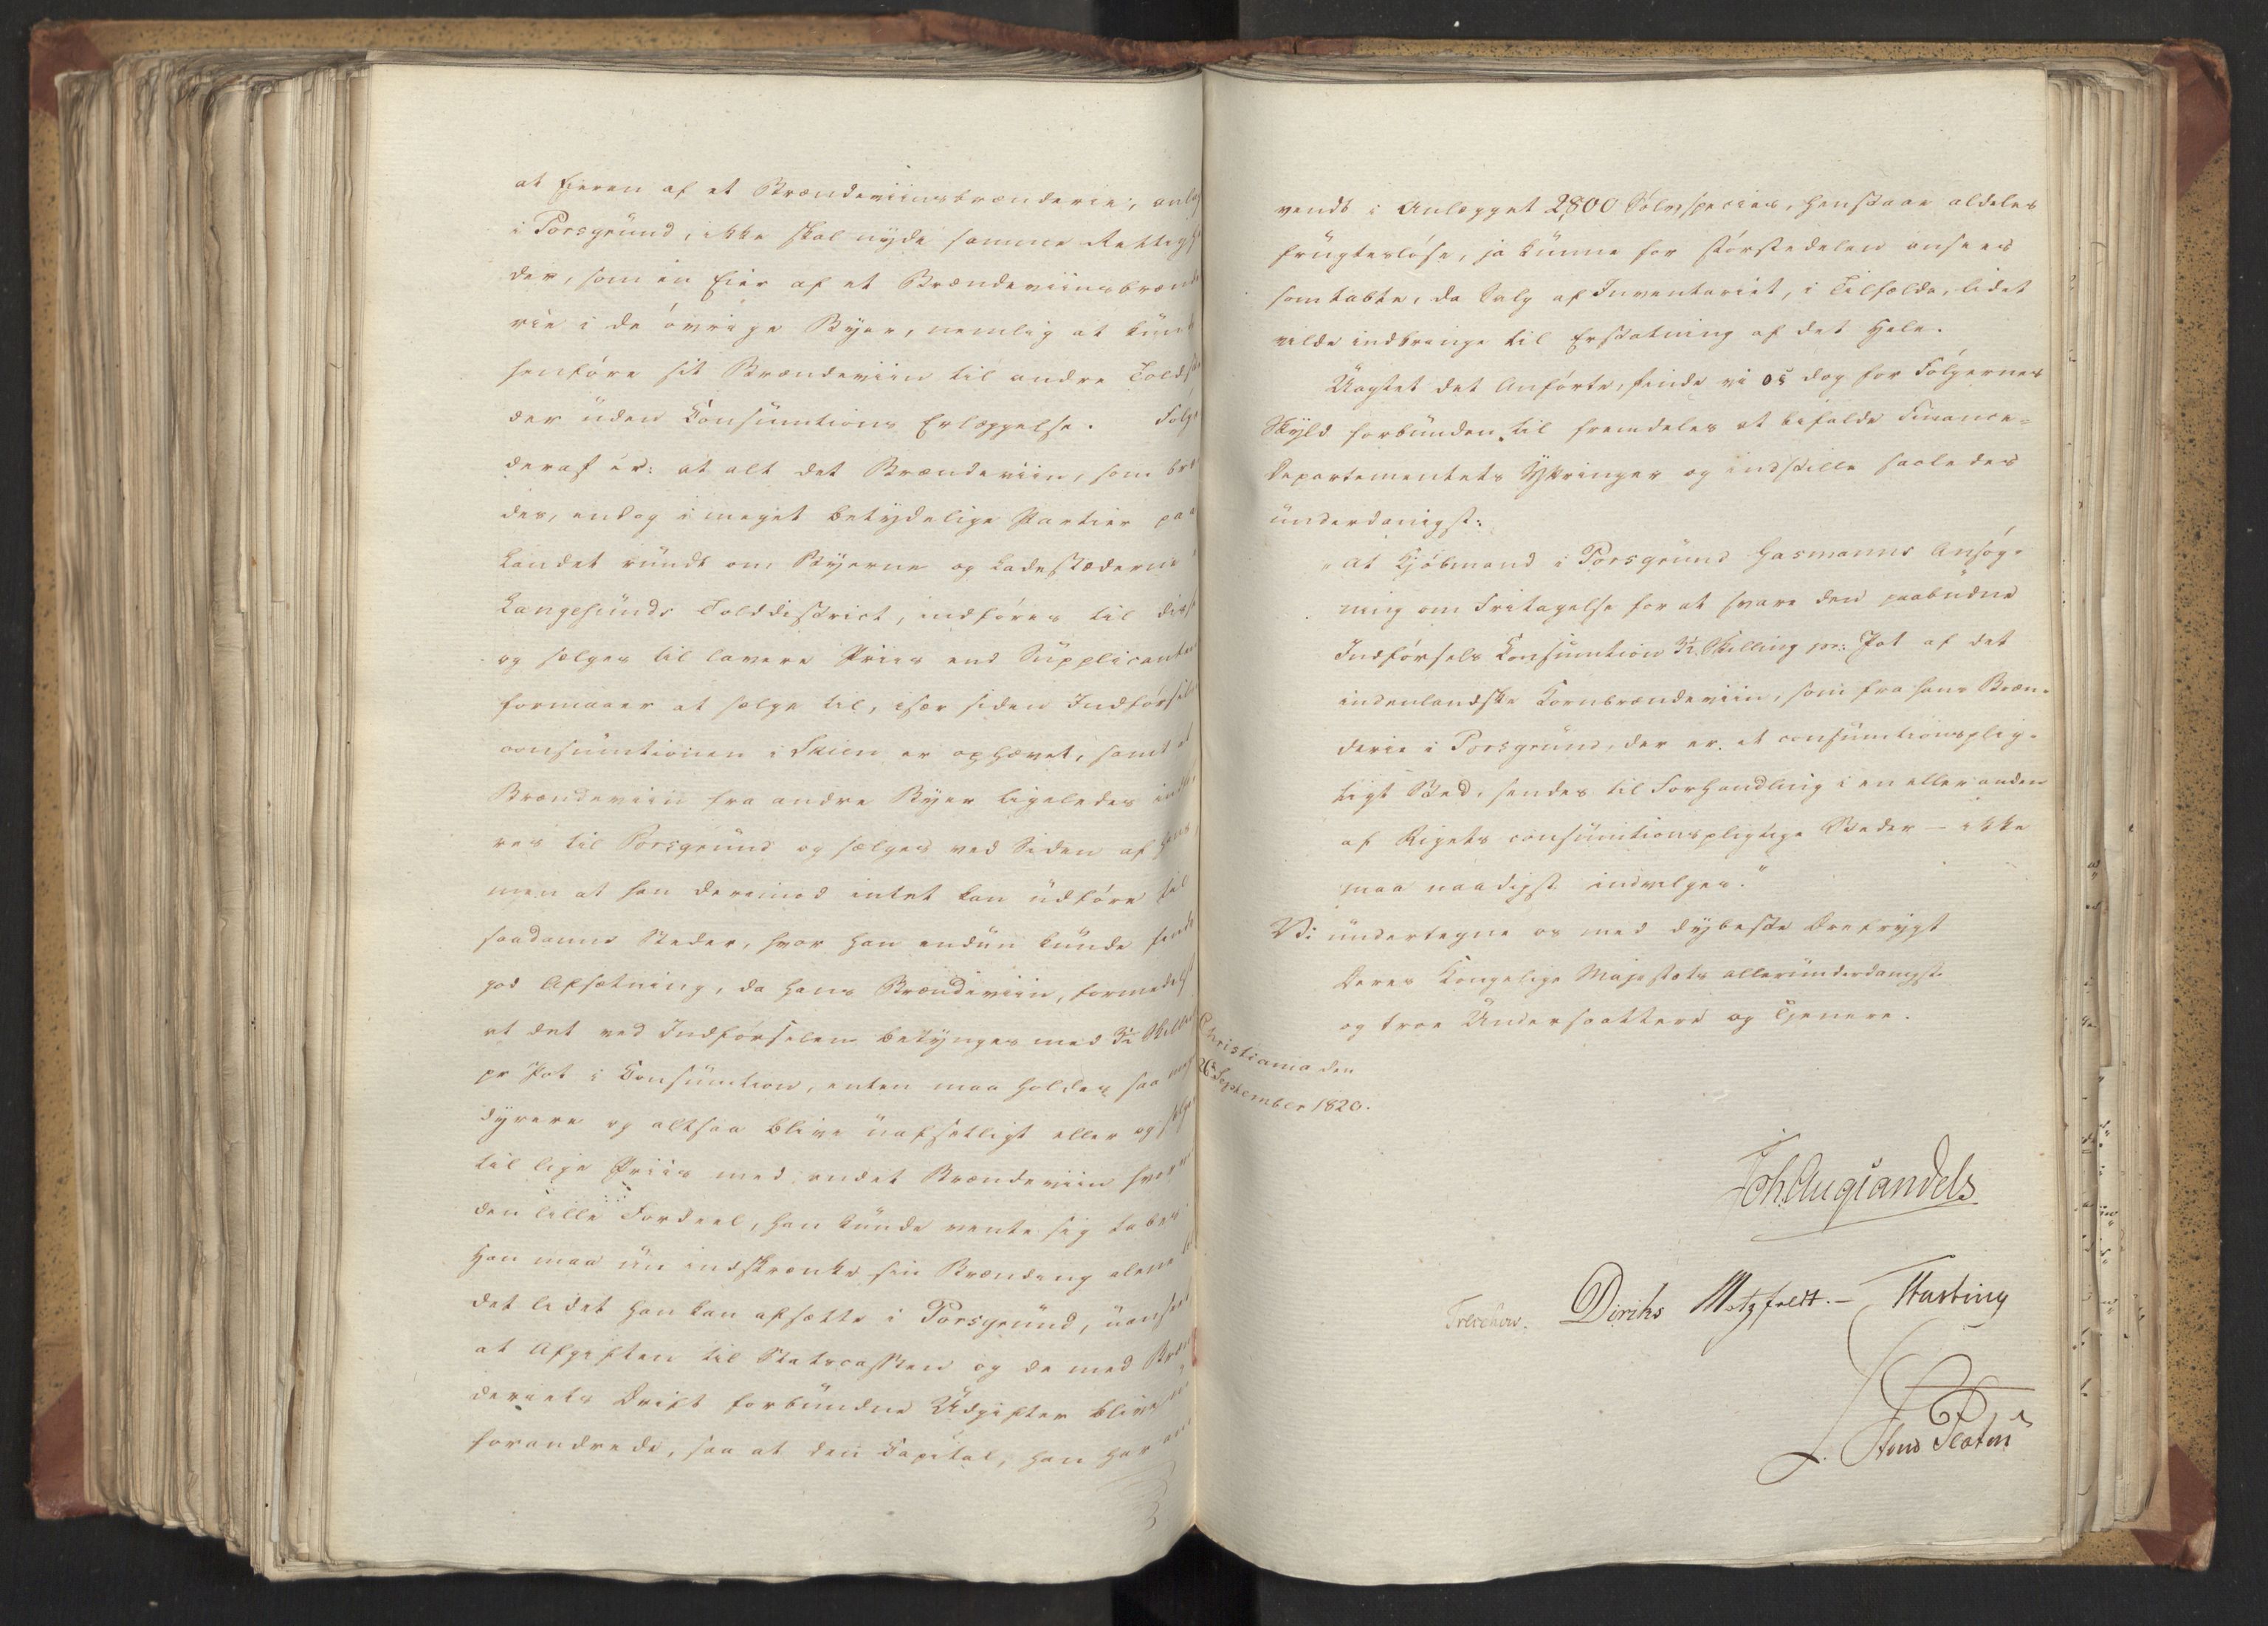 at Eieren af et Brændeviinsbrænderie, anlag
i Porsgrund, ikke skal nyde samme Rettighe
der, som en Eier af et Brændeviinsbrænde
rie i de øvrige Byer, nemlig at kunde
henføre sit Brændeviin til andre Toldste
der uden Consumtions Erlæggelse. Følge
deraf er: at alt det Brændeviin, som bræn
des, endog i meget betydelige Partier paa
Landet rundt om Byerne og Ladestæderne i
Langesunds Tolddistrict, indføres til disse
og sælges til lavere Priis end Supplicanten
formaaer at sælge til, især siden Indførsels
consumtionen i Skien er ophævet, samt at
Brændeviin fra andre Byer ligeledes indfø
res til Porsgrund og sælges ved Siden af hans,
men at han derimod intet kan udføre til
saadanne Steder, hvor han endnu kunde finde
god Afsætning, da hans Brændeviin, formedelst
at det ved Indførselen betynges med 3½ Skilling
pr Pot i Consumtion, enten maa holdes saa meget
dyrere og altsaa blive uafsetligt eller og sælges
til lige Priis med andet Brændeviin hvorved
den lille Fordeel, han kunde vente sig tabes
Han maa nu indskrænke sin Brænding alene til
det lidet han kan afsætte i Porsgrund, uanseet
at Afgiften til Statscassen og de med Bræn
deriets Drift forbundne Udgifter blive u
forandrede, saa at den Capital, han har an
vendt i Anlægget 2800 Sølvspecies, henstaae aldeles
frugtesløse, ja kunne for størstedelen ansees
som tabte, da Salg af Inventariet, i Tilfælde, lidet
vilde indbringe til Erstatning af det Hele.
Uagtet det Anførte, finde vi os dog for Følgernes
Skyld forbunden til fremdeles at bifalde Finance-
Departementets Yttringer og indstille saaledes
underdanigst:
"at Kjøbmand i Porsgrund Hasmanns Ansøg-
ning om Fritagelse for at svare den paabudne
Indførsels Consumtion 3½ Skilling pr: Pot af det
indenlandske Kornbrændeviin, som fra hans Bræn-
derie i Porsgrund, der er et consumtionsplig-
tigt Sted, sendes til Forhandling i en eller anden
af Rigets consumtionspligtige Steder – ikke
maa naadigst indvilges."
Vi undertegne os med dybeste Ærefrygt
Deres Kongelige Majestæts allerunderdanigste
og troe Undersaattere og Tjenere.
Christiania den
26 September 1820.
Joh Aug Sandels
Treschow. Diriks Motzfeldt.– Fasting
Steno Platou